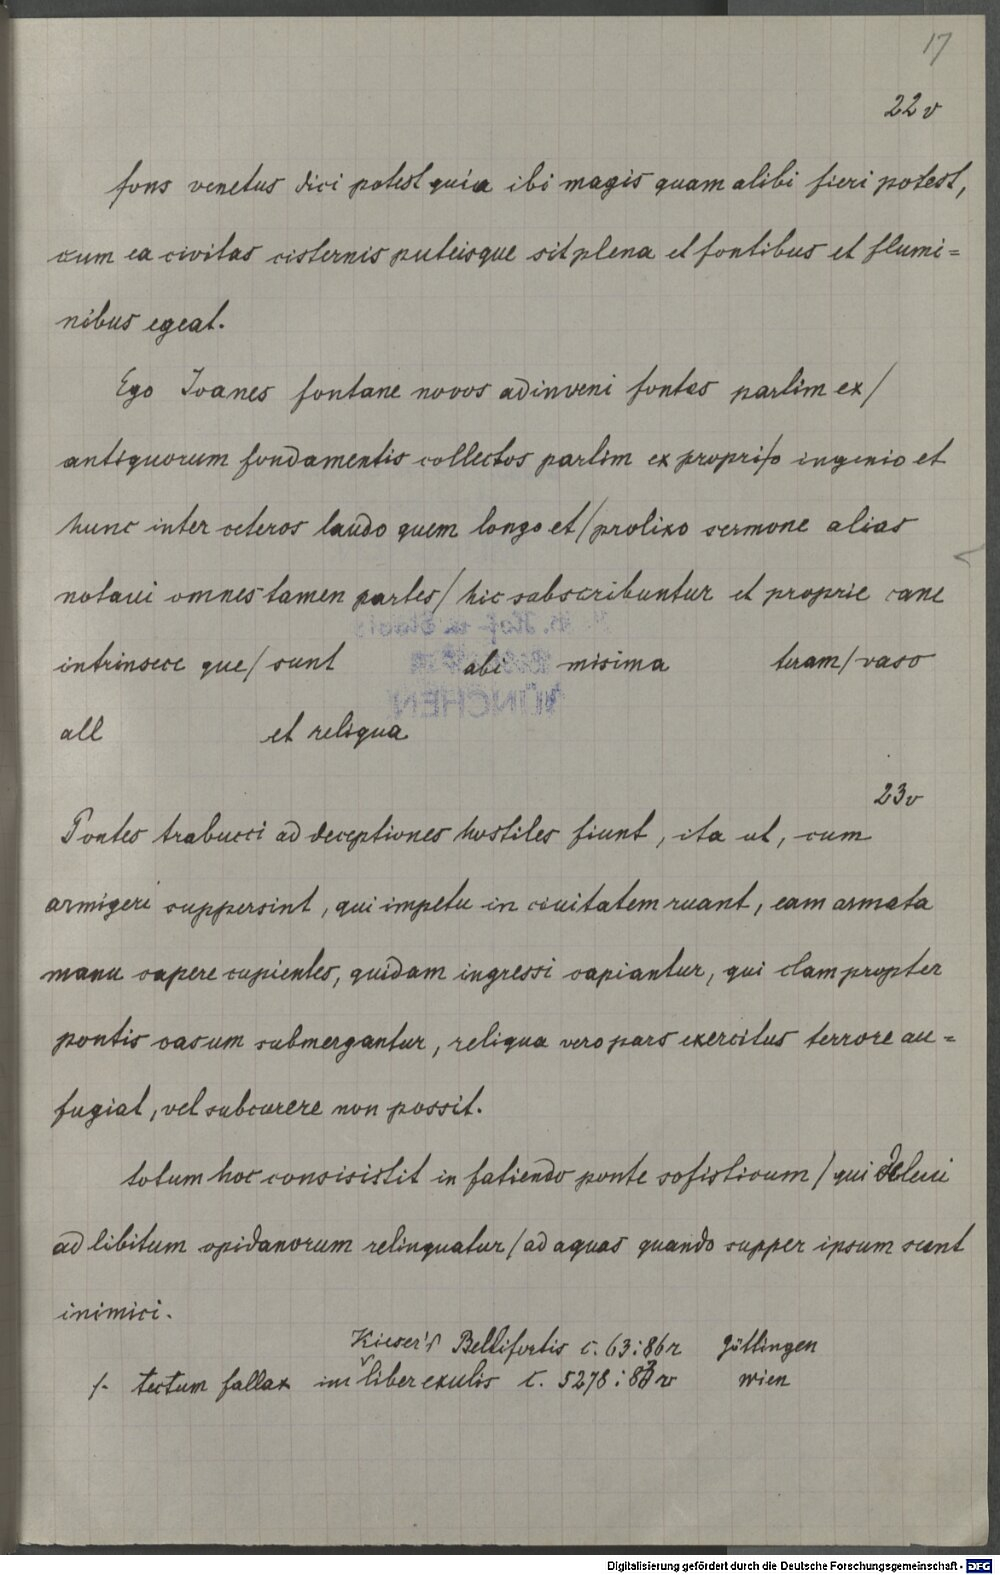 17
22v
fons venetus dici potest quia ibi magis quam alibi fieri potest,
cum ea civitas cisternis puteisque sit plena et fontibus et flumi=
nibus egeat.
Ego Ioanes fontane novos adinveni fontes partim ex/
antiquorum fondamentis collectos partim ex proprijo ingenio et
hunc inter ceteros laudo quem longo et/prolixo sermone alias
notaui omnes tamen partes/ hic subscribuntur et proprie cane
intrinsece que/ sunt abi misima teram/vaso
all et reliqua
23v
Pontes trabucci ad deceptiones hostiles fiunt, ita ut, cum
armigeri suppersint, qui impetu in ciuitatem ruant, eam armata
manu capere cupientes, quidam ingressi capiantur, qui clam propter
pontis casum submergantur, reliqua vero pars exercitus terrore au=
fugiat, vel subcurere non possit.
totum hoc consisistit in fatiendo ponte sofisticum/ qui
ad libitum opidanorum relinquatur/ad aquas quando supper ipsum sunt
inimici.
Kieser's Bellifortis c. 63:86r Göttingen
/. tectum fallax im liber exulis C. 5278:83v Wien
MÜNCHEN
Digitalisierung gefördert durch die Deutsche Forschungsgemeinschaft - DFG